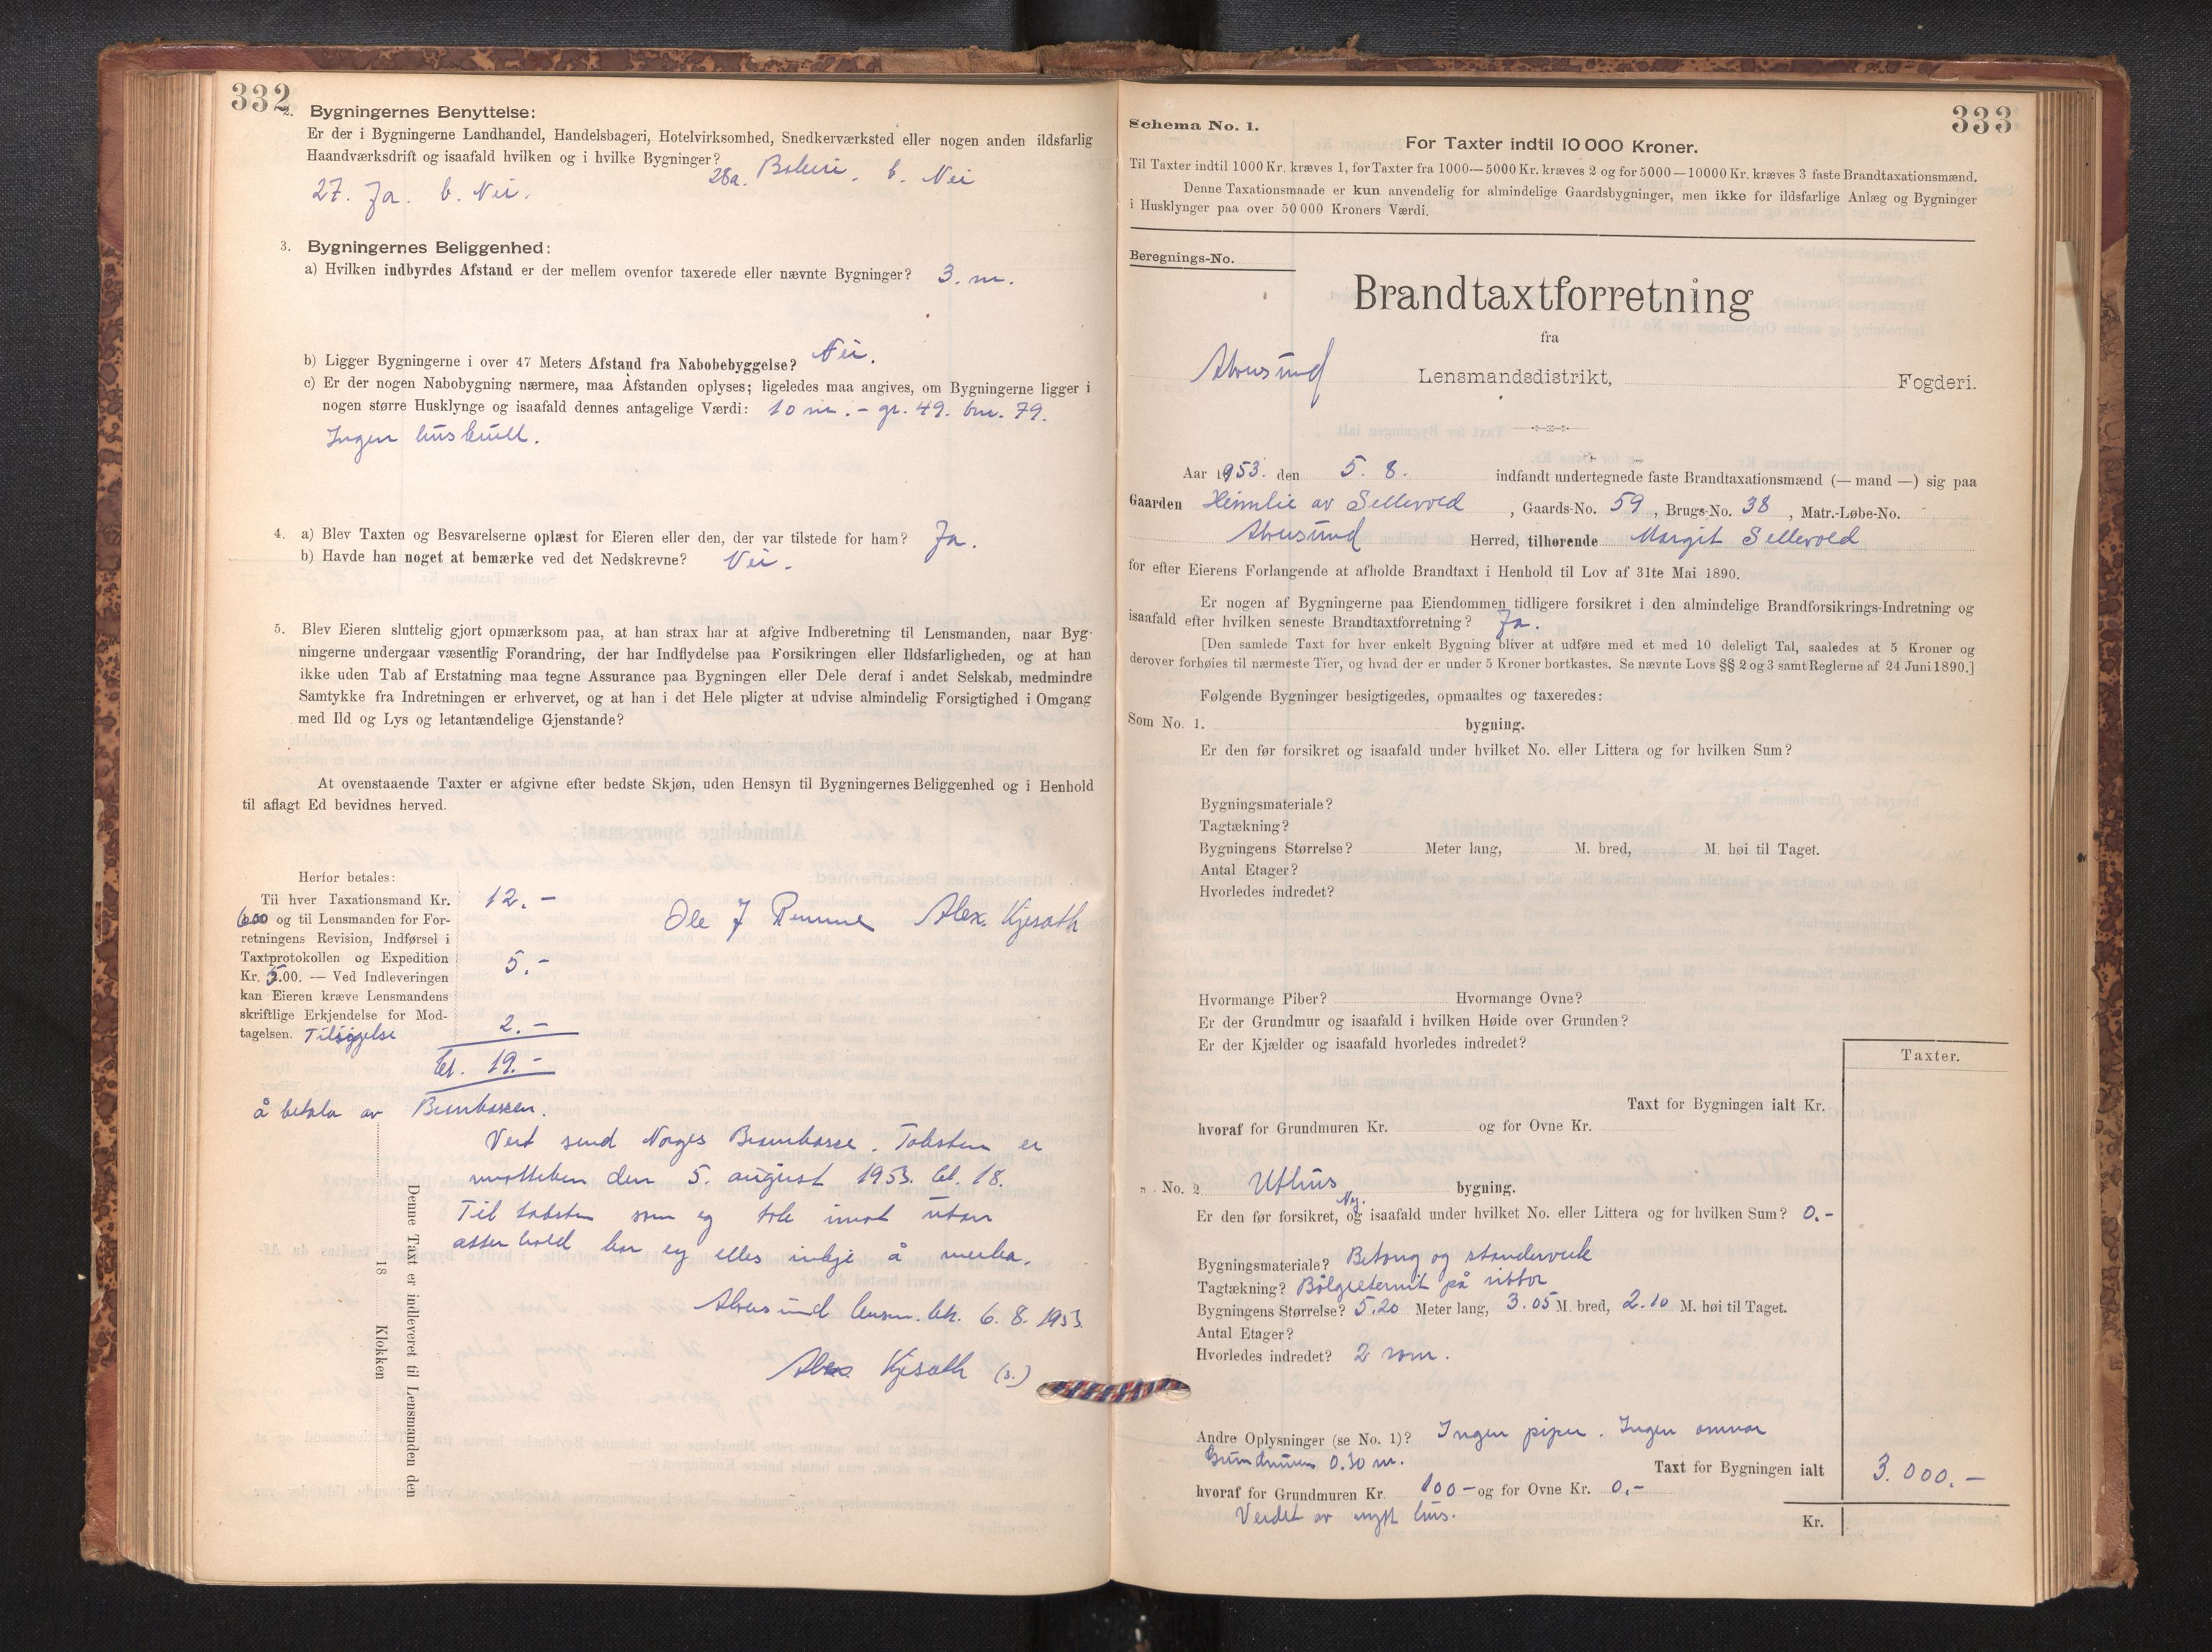 332
2. Bygningernes Benyttelse:
Er der i Bygningerne Landhandel, Handelsbageri, Hotelvirksomhed, Snedkerværksted eller nogen anden ildsfarlig
Haandværksdrift og isaafald hvilken og i hvilke Bygninger? 28a. Bakeri. b. Nei
27. Ja. b. Nei.
3. Bygningernes Beliggenhed:
a) Hvilken indbyrdes Afstand er der mellem ovenfor taxerede eller nævnte Bygninger? 3. m.
b) Ligger Bygningerne i over 47 Meters Afstand fra Nabobebyggelse? Nei.
c) Er der nogen Nabobygning nærmere, maa Afstanden oplyses; ligeledes maa angives, om Bygningerne ligger i
nogen større Husklynge og isaafald dennes antagelige Værdi: 10 m. - gr. 49. bnr. 79.
Ingen huskull.
4. a) Blev Taxten og Besvarelserne oplæst for Eieren eller den, der var tilstede for ham? Ja.
b) Havde han noget at bemærke ved det Nedskrevne? Nei.
5. Blev Eieren sluttelig gjort opmærksom paa, at han strax har at afgive Indberetning til Lensmanden, naar Byg-
ningerne undergaar væsentlig Forandring, der har Indflydelse paa Forsikringen eller Ildsfarligheden, og at han
ikke uden Tab af Erstatning maa tegne Assurance paa Bygningen eller Dele deraf i andet Selskab, medmindre
Samtykke fra Indretningen er erhvervet, og at han i det Hele pligter at udvise almindelig Forsigtighed i Omgang
med Ild og Lys og letantændelige Gjenstande?
At ovenstaaende Taxter er afgivne efter bedste Skjøn, uden Hensyn til Bygningernes Beliggenhed og i Henhold
til aflagt Ed bevidnes herved.
Herfor betales:
Til hver Taxationsmand Kr. 12.-
6.00 og til Lensmanden for For-
retningens Revision, Indførsel i
Taxtprotokollen og Expedition
Kr. 5.00. — Ved Indleveringen 5.-
kan Eieren kræve Lensmandens
skriftlige Erkjendelse for Mod-
tagelsen. Tilsigelse 2.-
kr. 19.-
Ole J Alex. Kjesath
å betala av Brannkassen.
Vert send Norges Brannkasse. Taksten er
motteken den 5. august 1953. kl. 18.
Til taksten som eg tek imot utan
atterhald har eg elles inkje å merka.
Alversund lensm. ktr. 6. 8. 1953
Alex. Kjesath (s.)
Denne Taxt er indleveret til Lensmanden den
18 Klokken
333
Schema No. 1.
For Taxter indtil 10 000 Kroner.
Til Taxter indtil 1000 Kr. kræves 1, for Taxter fra 1000—5000 Kr. kræves 2 og for 5000—10000 Kr. kræves 3 faste Brandtaxationsmænd.
Denne Taxationsmaade er kun anvendelig for almindelige Gaardsbygninger, men ikke for ildsfarlige Anlæg og Bygninger
i Husklynger paa over 50 000 Kroners Værdi.
Beregnings-No.
Brandtaxtforretning
fra
Alversund Lensmandsdistrikt, Fogderi.
Aar 1953. den 5. 8. indfandt undertegnede faste Brandtaxationsmænd (— mand —) sig paa
Gaarden Heimlie av Sellevold, Gaards-No. 59, Brugs-No. 38, Matr.-Løbe-No.
Alversund Herred, tilhørende Margit Sellevold
for efter Eierens Forlangende at afholde Brandtaxt i Henhold til Lov af 31te Mai 1890.
Er nogen af Bygningerne paa Eiendommen tidligere forsikret i den almindelige Brandforsikrings-Indretning og
isaafald efter hvilken seneste Brandtaxtforretning? Ja.
[Den samlede Taxt for hver enkelt Bygning bliver at udføre med et med 10 deleligt Tal, saaledes at 5 Kroner og
derover forhøies til nærmeste Tier, og hvad der er under 5 Kroner bortkastes. Se nævnte Lovs §§ 2 og 3 samt Reglerne af 24 Juni 1890.]
Følgende Bygninger besigtigedes, opmaaltes og taxeredes:
Som No. 1. bygning.
Er den før forsikret og isaafald under hvilket No. eller Littera og for hvilken Sum?
Bygningsmateriale?
Tagtækning?
Bygningens Størrelse? Meter lang, M. bred, M. høi til Taget.
Antal Etager?
Hvorledes indredet?
Hvormange Piber? Hvormange Ovne?
Er der Grundmur og isaafald i hvilken Høide over Grunden?
Er der Kjælder og isaafald hvorledes indredet?
Taxter.
Taxt for Bygningen ialt Kr.
hvoraf for Grundmuren Kr. og for Ovne Kr.
" No. 2 Uthus bygning.
Ny.
Er den før forsikret, og isaafald under hvilket No. eller Littera og for hvilken Sum? 0.-
Bygningsmateriale? Betong og standerverk
Tagtækning? Bølgeeternit på
Bygningens Størrelse? 5.20 Meter lang, 3.05 M. bred, 2.10 M. høi til Taget.
Antal Etager?
Hvorledes indredet? 2 rom.
Andre Oplysninger (se No. 1)? Ingen piper. Ingen omnar
Grundmuren 0.30 m. Taxt for Bygningen ialt 3.000.-
hvoraf for Grundmuren Kr. 100- og for Ovne Kr. 0.-
Verdet av nytt hus. Kr.